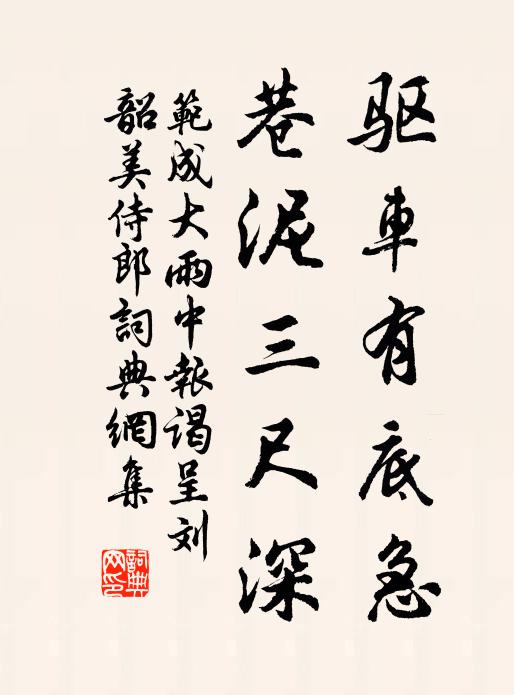 驱車有底急
巷泥三尺深
範成大雨中報謁呈刘
韶美侍郎詞典網集
詞典
网印